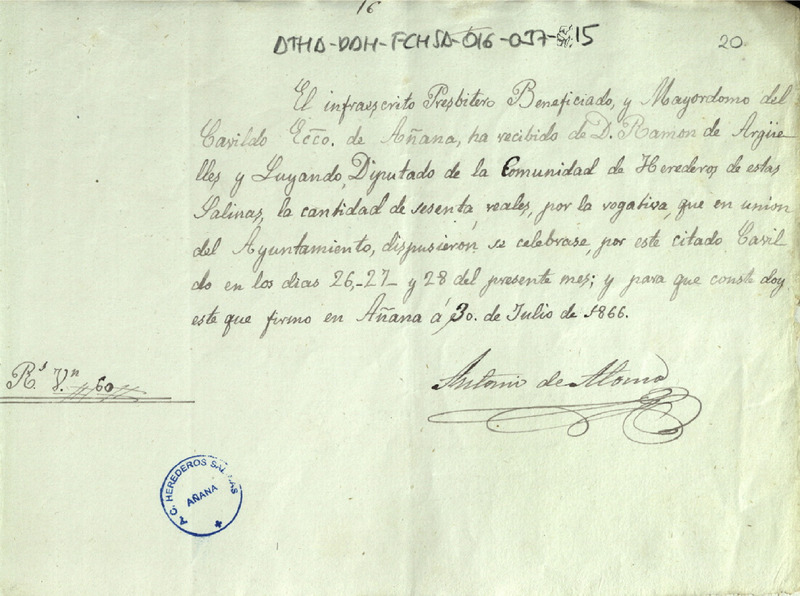 16
ATHA-DAH-FCHSA-016-037-15
20
El infraescrito Presbitero Beneficiado, y Mayordomo del
Cavildo Ecco. de Añana, ha recibido de D. Ramon de Argüe-
lles y Luyando, Diputado de la Comunidad de Herederos de estas
Salinas, la cantidad de sesenta reales, por la rogativa, que en union
del Ayuntamiento, dispusieron se celebrase, por este citado Cavil-
do en los dias 26,-27- y 28 del presente mes; y para que conste doy
este que firmo en Añana á 30. de Julio de 1866.
Antonio de
Rs Vn 60
A. C. HEREDEROS SALINAS
AÑANA